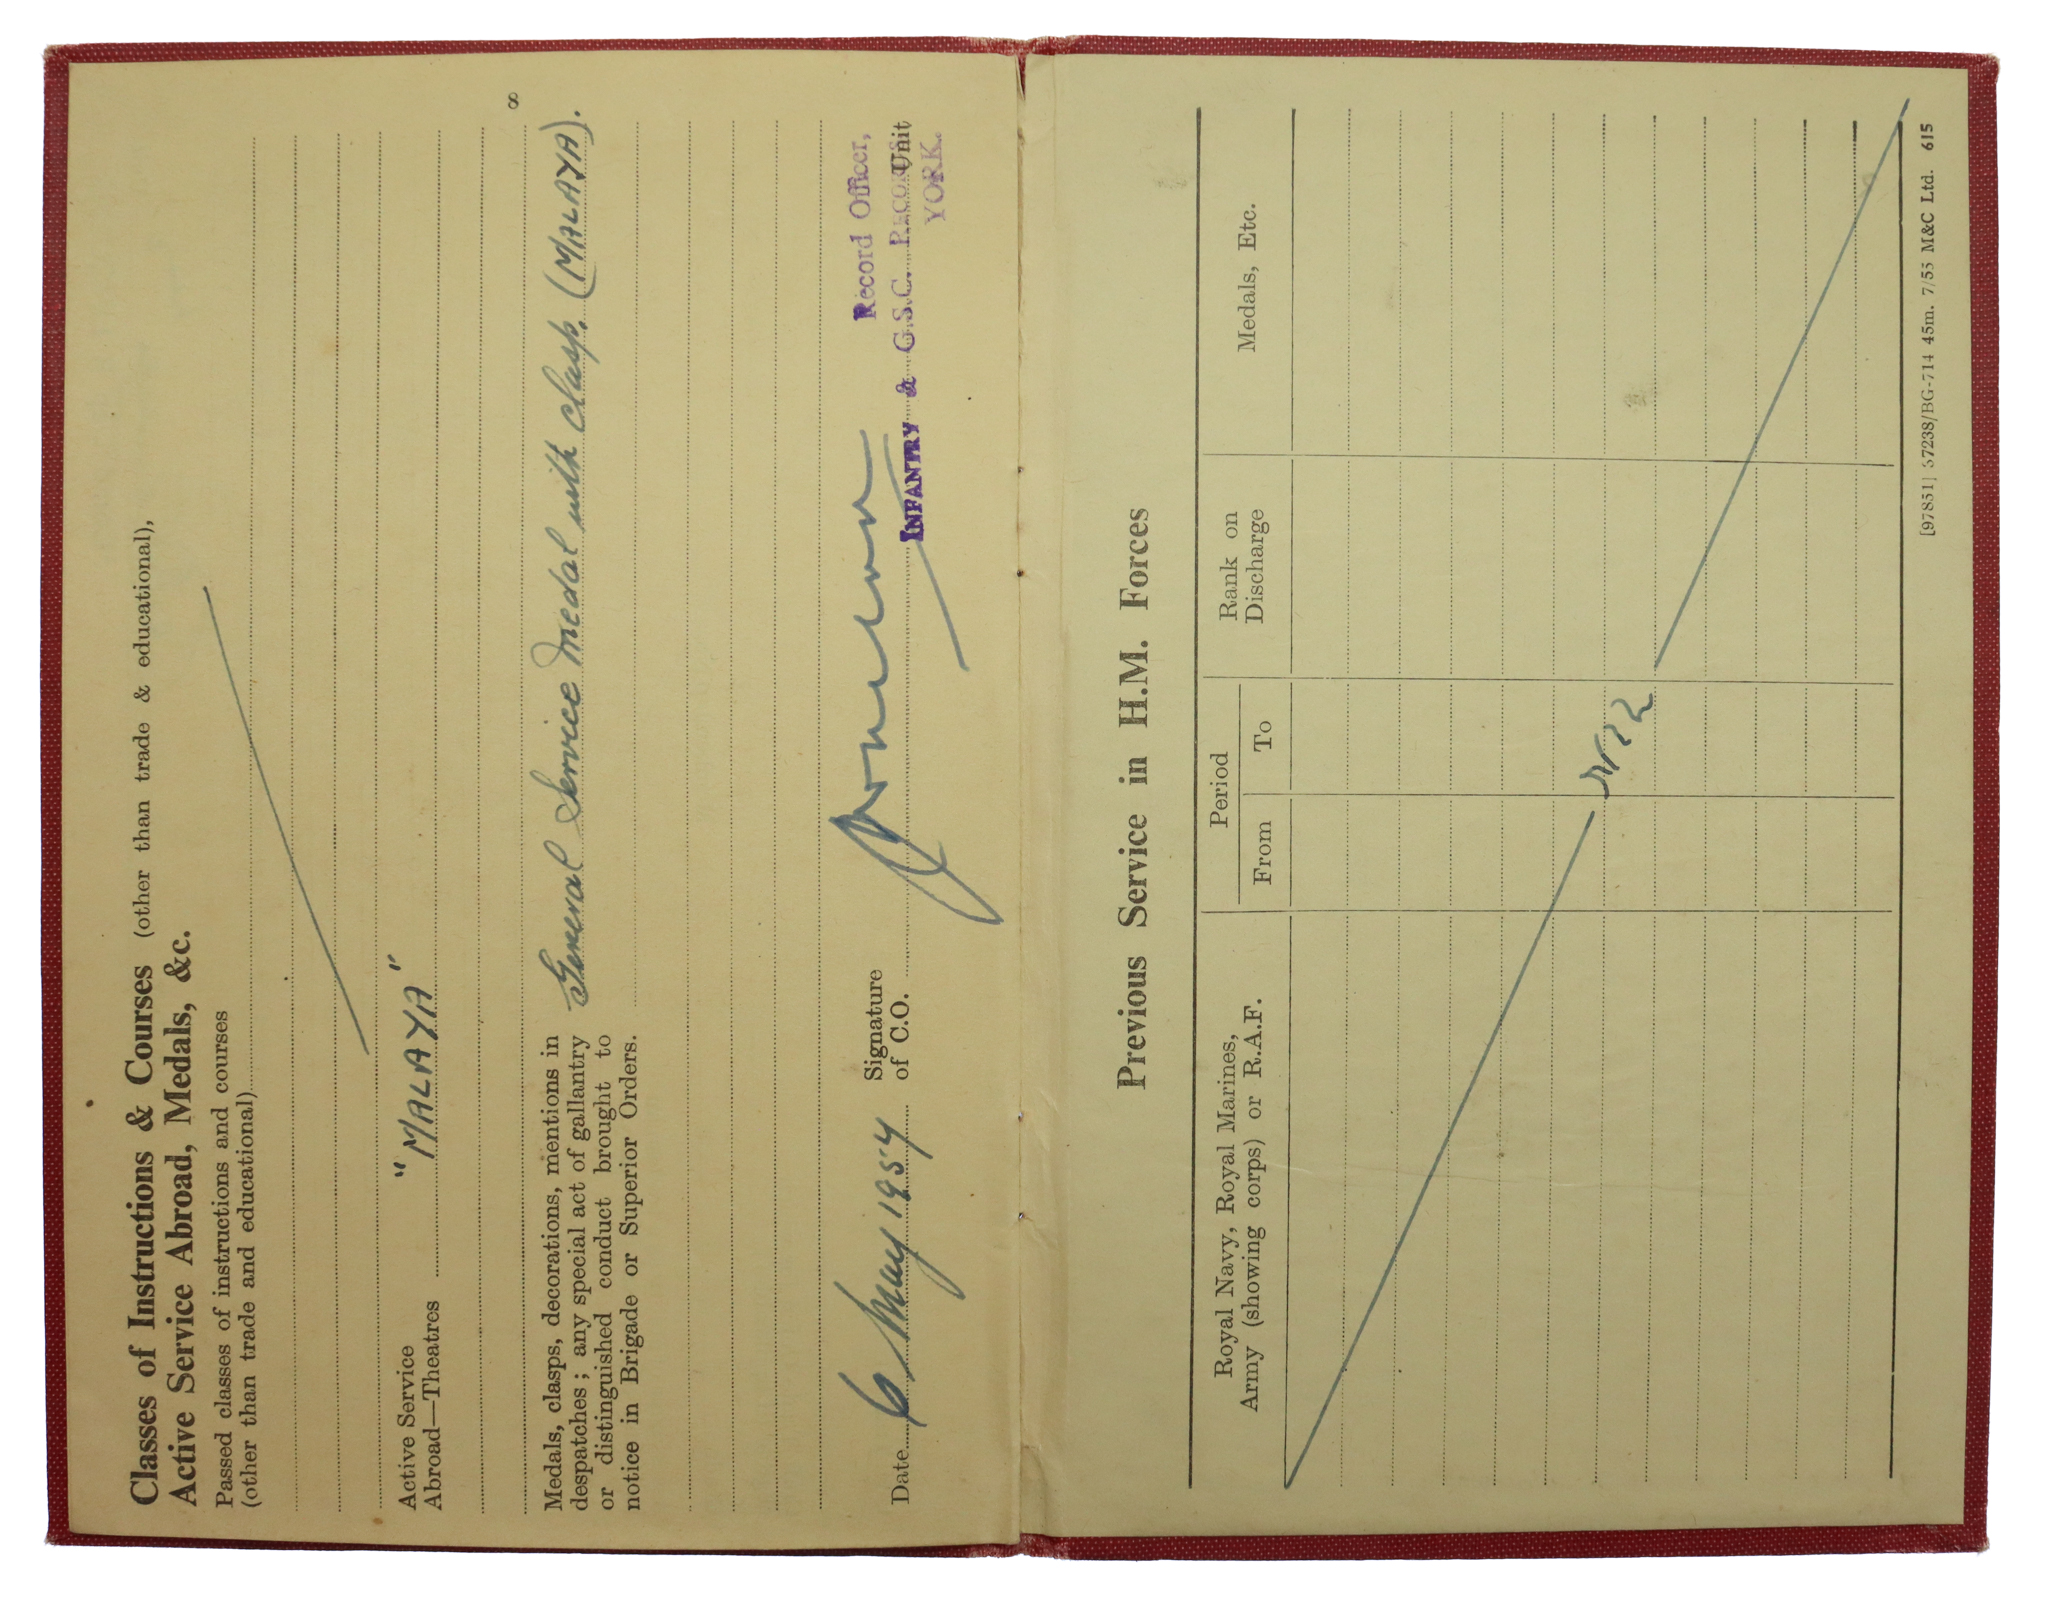 8
Classes of Instructions & Courses (other than trade & educational),
Active Service Abroad, Medals, &c.
Passed classes of instructions and courses
(other than trade and educational)
Active Service
Abroad—Theatres "MALAYA"
Medals, clasps, decorations, mentions in
despatches; any special act of gallantry General Service Medal with clasp. (MALAYA).
or distinguished conduct brought to
notice in Brigade or Superior Orders.
Date 6 May 1954 Signature
of C.O.
Record Officer,
INFANTRY & G.S.C. RECORD Unit
YORK.
Previous Service in H.M. Forces
Royal Navy, Royal Marines,
Army (showing corps) or R.A.F.
Period
From To
Rank on
Discharge
Medals, Etc.
NIL
[97851] 57238/BG-714 45m. 7/53 M&C Ltd. 615